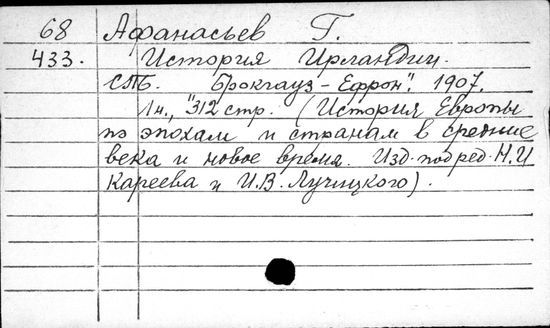 68 Афанасьев Г.
433. История Ирландии.
СПБ. "Брокгауз-Ефрон". 1907.
1н., 312 стр. (История Европы
по эпохам и странам в средние
века и новое время. Изд. под ред. Н.И
Кареева и И.В. Лучицкого).